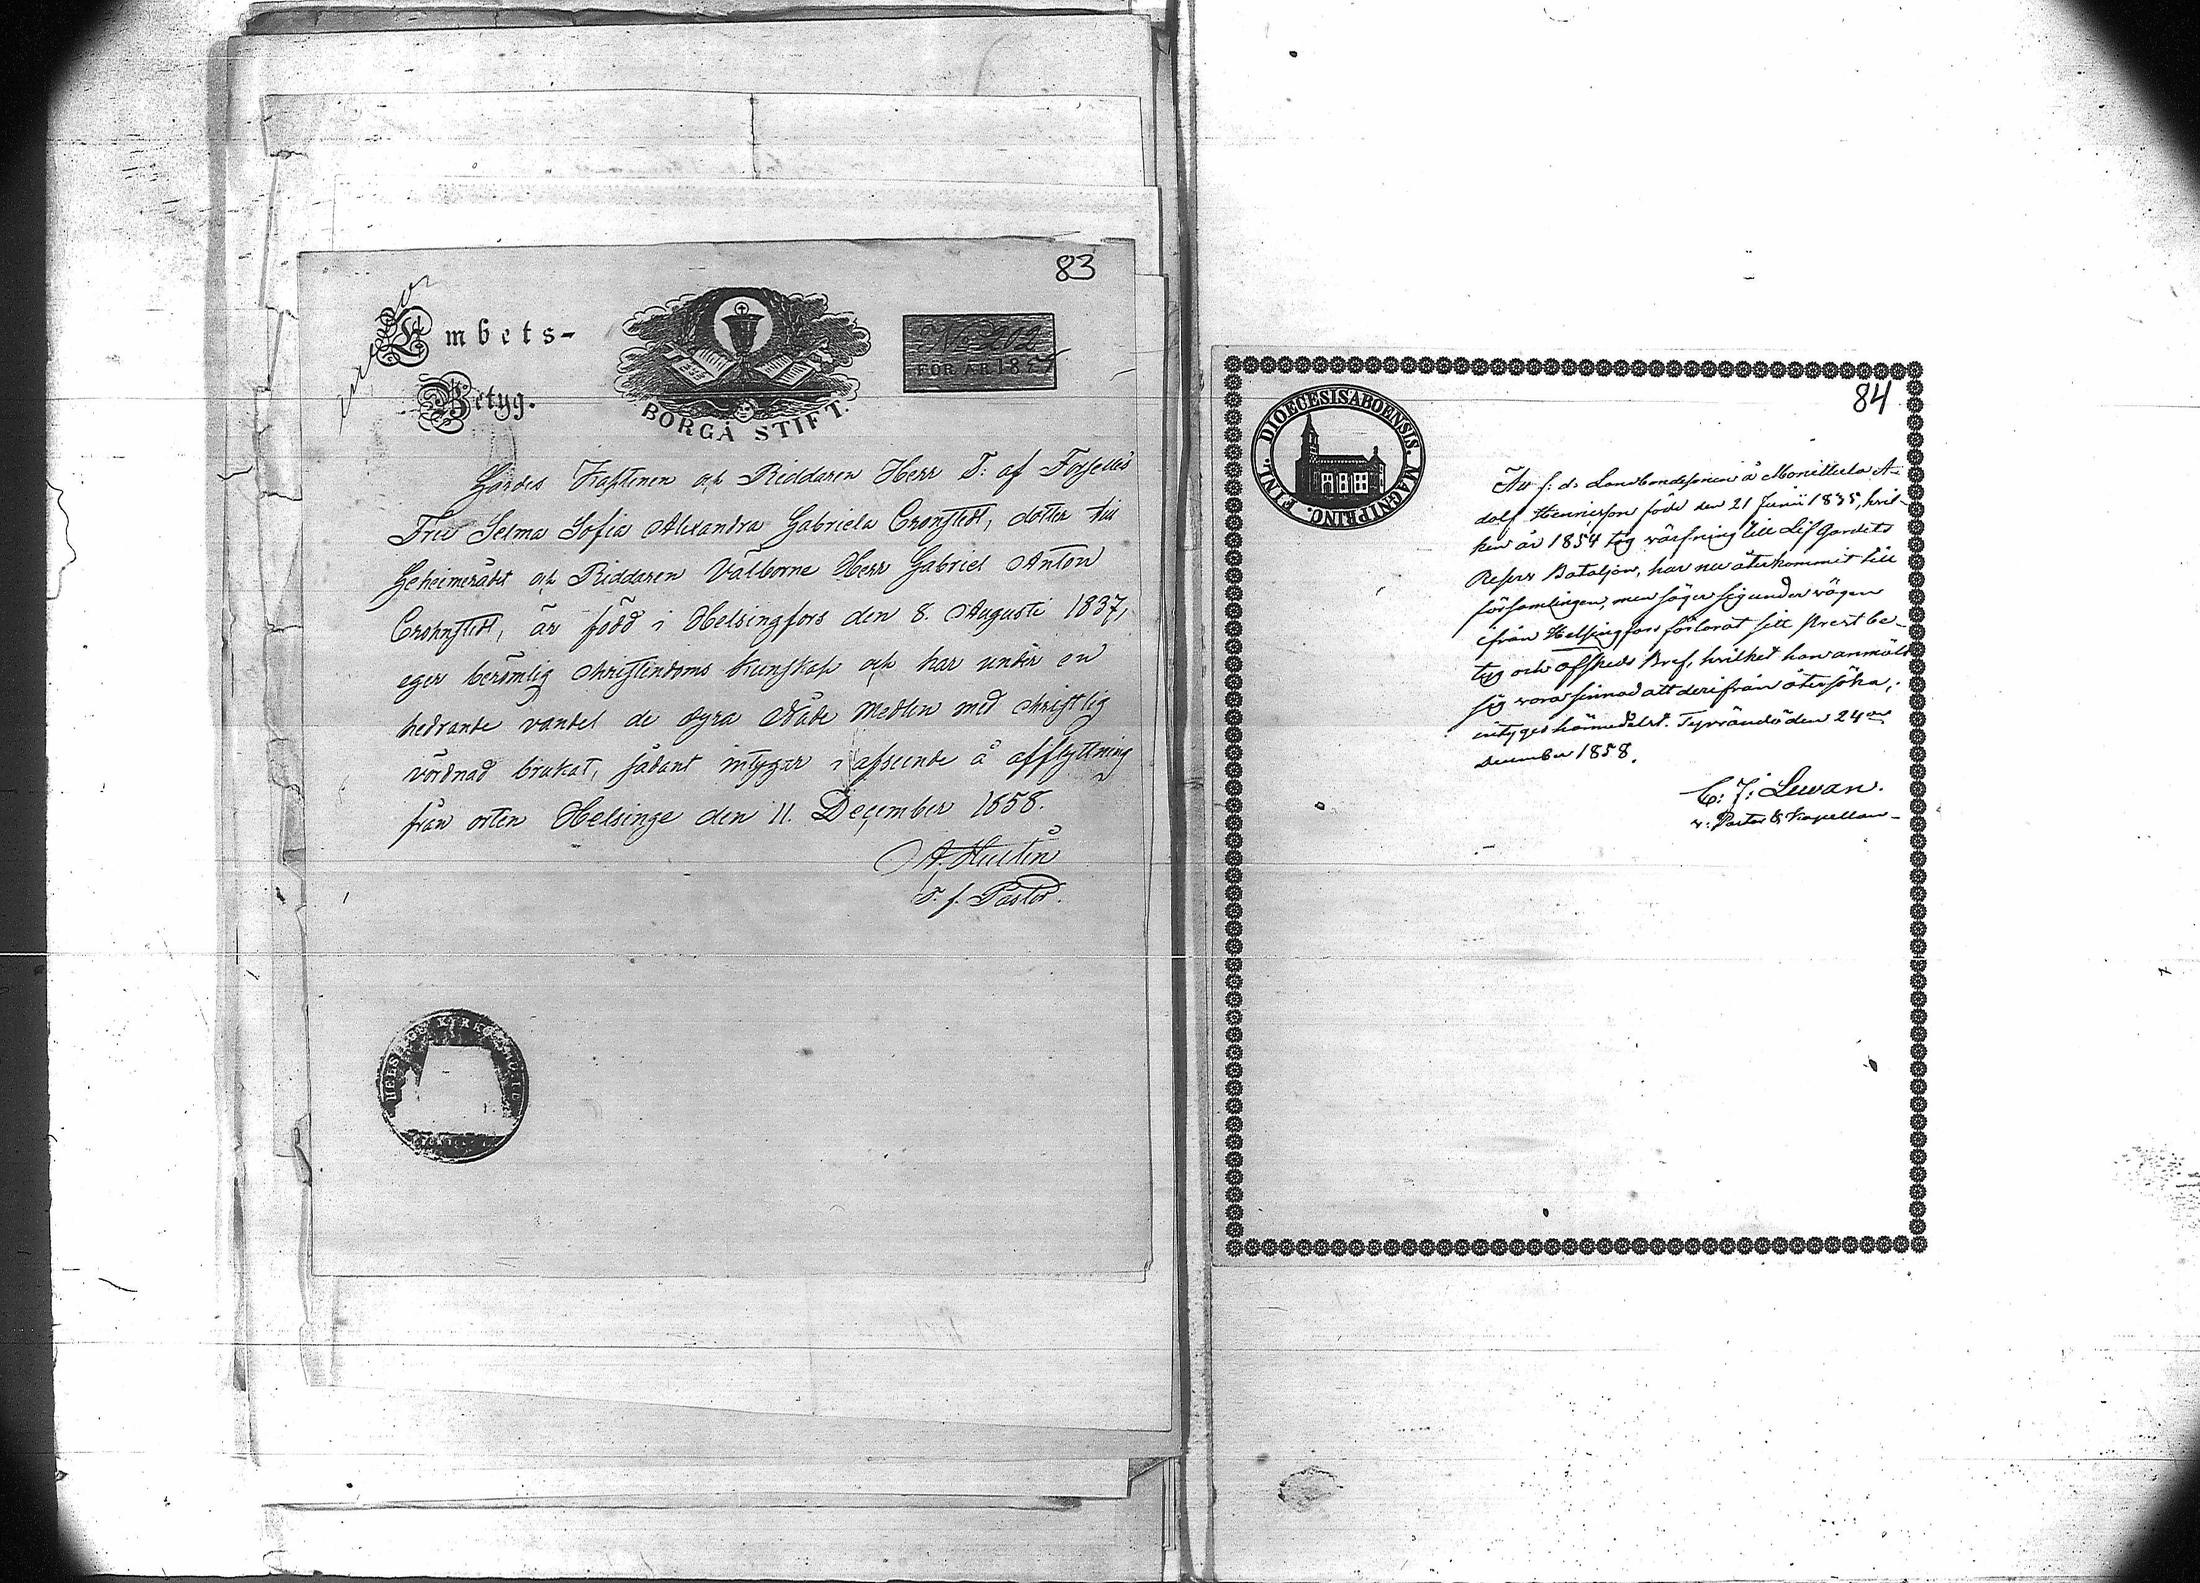 83
Embets-
Betyg.
BORGÅ STIFT.
No 202
FÖR ÅR 1857
Gardes Kaptenen och Riddaren Herr T: af Forselles
Fru Selma Sofia Alexandra Gabriela Cronstedt, dotter till
Geheimerådet och Riddaren Välborne Herr Gabriel Anton
Crohnstedt, är född i Helsingfors den 8. Augusti 1837,
eger berömlig Christendoms kunskap och har under en
hedrande vandel de dyra Nåde Medlen med Christlig
vördnad brukat, sådant intygar i afseende å afflyttning
från orten Helsinge den 11. December 1858.
A. Hultin
T. f. Pastor.
HELSINGE KYRKO
84
DIOECESIS ABOENSIS. MAGNI PRINC. FINL.
Att f: d: Landbondesonen å Monittula A-
dolf Henriksson född den 21 Junii 1835, hvil-
ken år 1854 tog värfning till Lif Gardets
Reserv Bataljon, har nu återkommit till
församlingen, men säger sig under vägen
ifrån Helsingfors förlorat sitt Prestbe-
tyg och Afskeds Bref, hvilket han anmält
sig vara sinnad att derifrån återsöka,
intygas härmedelst. Tyrvändö den 24de
December 1858.
C: J: Levan.
v: Pastor & Kapellan